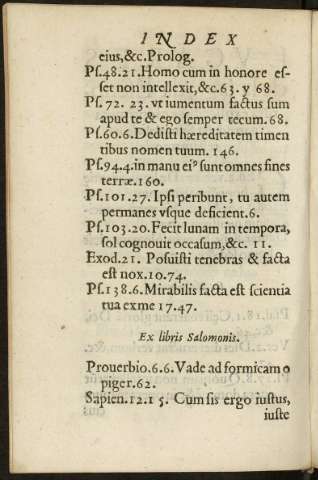 INDEX
eius,&c.Prolog.
Ps.48.21.Homo cum in honore es-
set non intellexit,&c.63. y 68.
Ps. 72. 23. vt iumentum factus sum
apud te & ego semper tecum. 68.
Ps.60.6.Dedisti hæreditatem timen
tibus nomen tuum. 146.
Ps.94.4.in manu ei⁹ sunt omnes fines
terræ.160.
Ps.101.27. Ipsi peribunt, tu autem
permanes vsque deficient.6.
Ps.103.20.Fecit lunam in tempora,
sol cognouit occasum,&c. 11.
Exod.21. Posuisti tenebras & facta
est nox.10.74.
Ps.138.6.Mirabilis facta est scientia
tua ex me 17.47.
Ex libris Salomonis.
Prouerbio.6.6.Vade ad formicam o
piger.62.
Sapien.12.15. Cum sis ergo iustus,
iuste